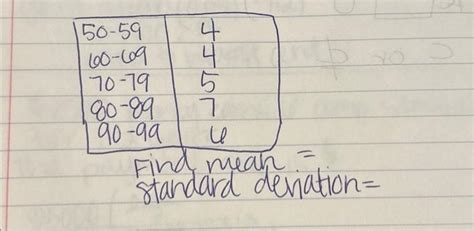 50-59 4
60-69 4
70-79 5
80-89 7
90-99 6
Find mean =
standard deviation=